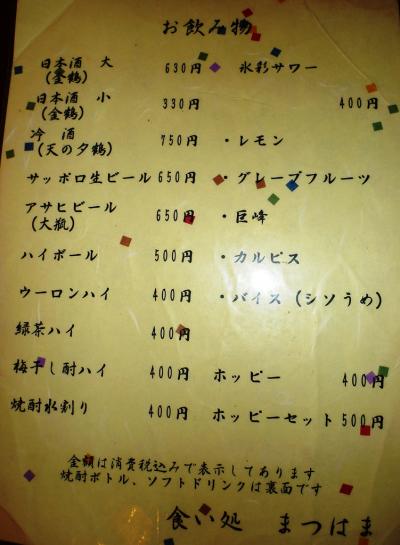 お飲み物
日本酒 大 630円
(金鶴)
日本酒 小 330円
(金鶴)
冷 酒 750円
(天の夕鶴)
サッポロ生ビール 650円
アサヒビール 650円
(大瓶)
ハイボール 500円
ウーロンハイ 400円
緑茶ハイ 400円
梅干し酎ハイ 400円
焼酎水割り 400円
氷彩サワー
400円
・レモン
・グレープフルーツ
・巨峰
・カルピス
・バイス(シソうめ)
ホッピー 400円
ホッピーセット 500円
金額は消費税込みで表示してあります
焼酎ボトル、ソフトドリンクは裏面です
食い処 まつはま